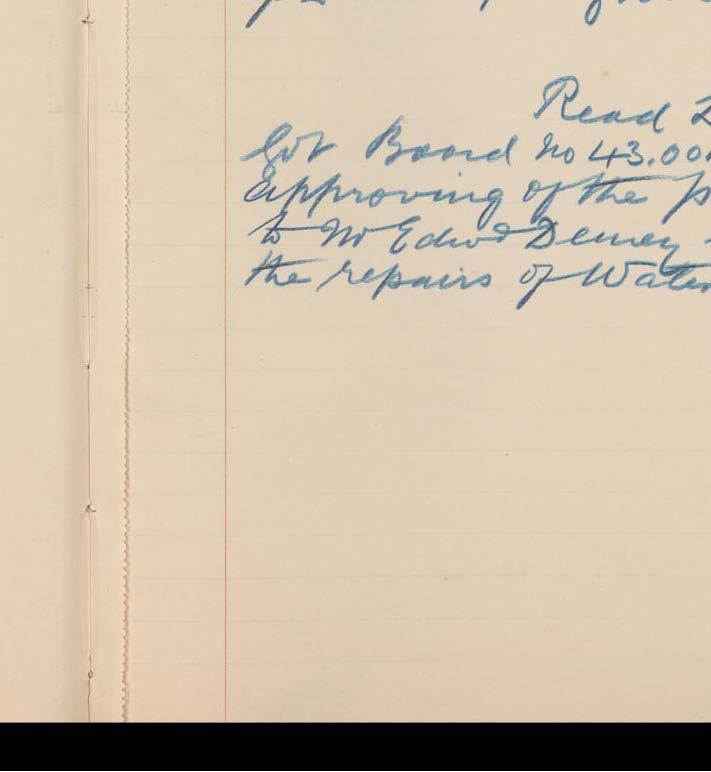 Read
Gov Board No 43.00
approving of the
to Mr Edwd Demey
the repairs of Water